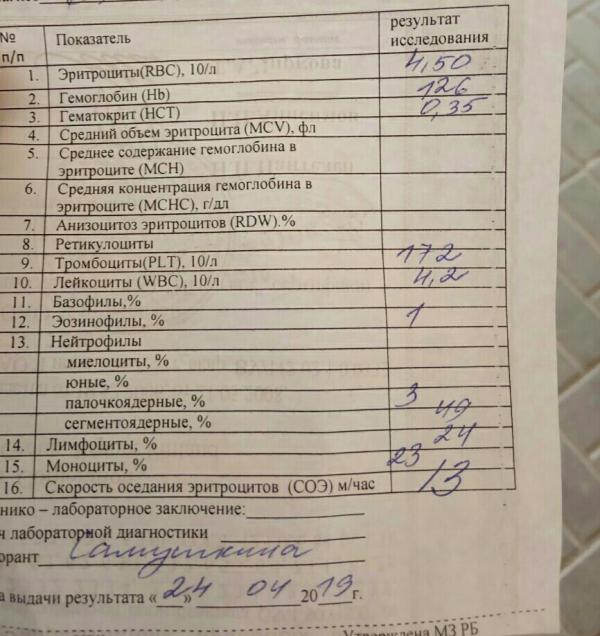 № п/п Показатель результат исследования
1. Эритроциты(RBC), 10/л 4,50
2. Гемоглобин (Hb) 126
3. Гематокрит (HCT) 0,35
4. Средний объем эритроцита (MCV), фл
5. Среднее содержание гемоглобина в
эритроците (MCH)
6. Средняя концентрация гемоглобина в
эритроците (MCHC), г/дл
7. Анизоцитоз эритроцитов (RDW).%
8. Ретикулоциты
9. Тромбоциты(PLT), 10/л 172
10. Лейкоциты (WBC), 10/л 4,2
11. Базофилы,%
12. Эозинофилы, % 1
13. Нейтрофилы
миелоциты, %
юные, %
палочкоядерные, % 3
сегментоядерные, % 49
14. Лимфоциты, % 24
15. Моноциты, % 23
16. Скорость оседания эритроцитов (СОЭ) м/час 13
нико – лабораторное заключение:
ч лабораторной диагностики
орант
а выдачи результата «24» 04 2019 г.
Утверждена МЗ РБ